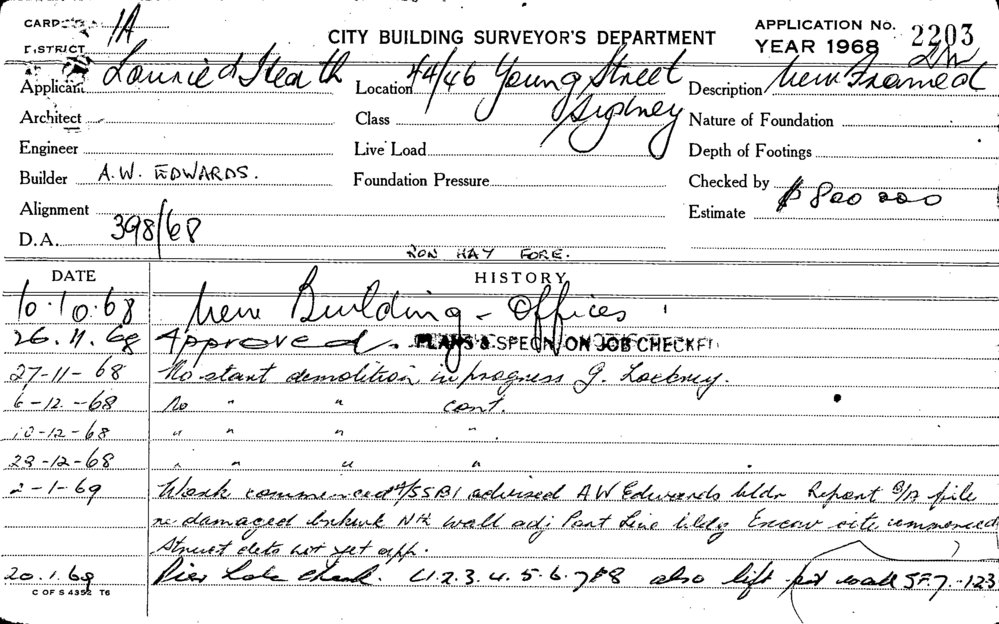 CARD 1A
CITY BUILDING SURVEYOR'S DEPARTMENT
APPLICATION No. 2203
DISTRICT
YEAR 1968
Applicant Lawrie d Heath
Location 44/46 Young Street
Sydney
Description New Framed
Architect
Class
Nature of Foundation
Engineer
Live Load
Depth of Footings
Builder A.W. EDWARDS.
Foundation Pressure
Checked by
Alignment
Estimate $ 800 000
D.A. 398/68
RON HAY FORE.
DATE
HISTORY
10.10.68 New Building - Offices
26.11.68 Approved. PLANS & SPECN ON JOB CHECKED
27-11-68 No start demolition in progress J.
6-12-68 No " " cont.
10-12-68 " " " "
23-12-68 " " " "
2-1-69 Work commenced advised A W Edwards bldr Report file
re damaged Nth wall adj Part Line bldg Excav site commenced
Struct dets not yet app.
20.1.69 Pier hole check. 1.2.3.4.5.6.7 & 8 also lift pit wall SF7.-123
C OF S 4352 T6